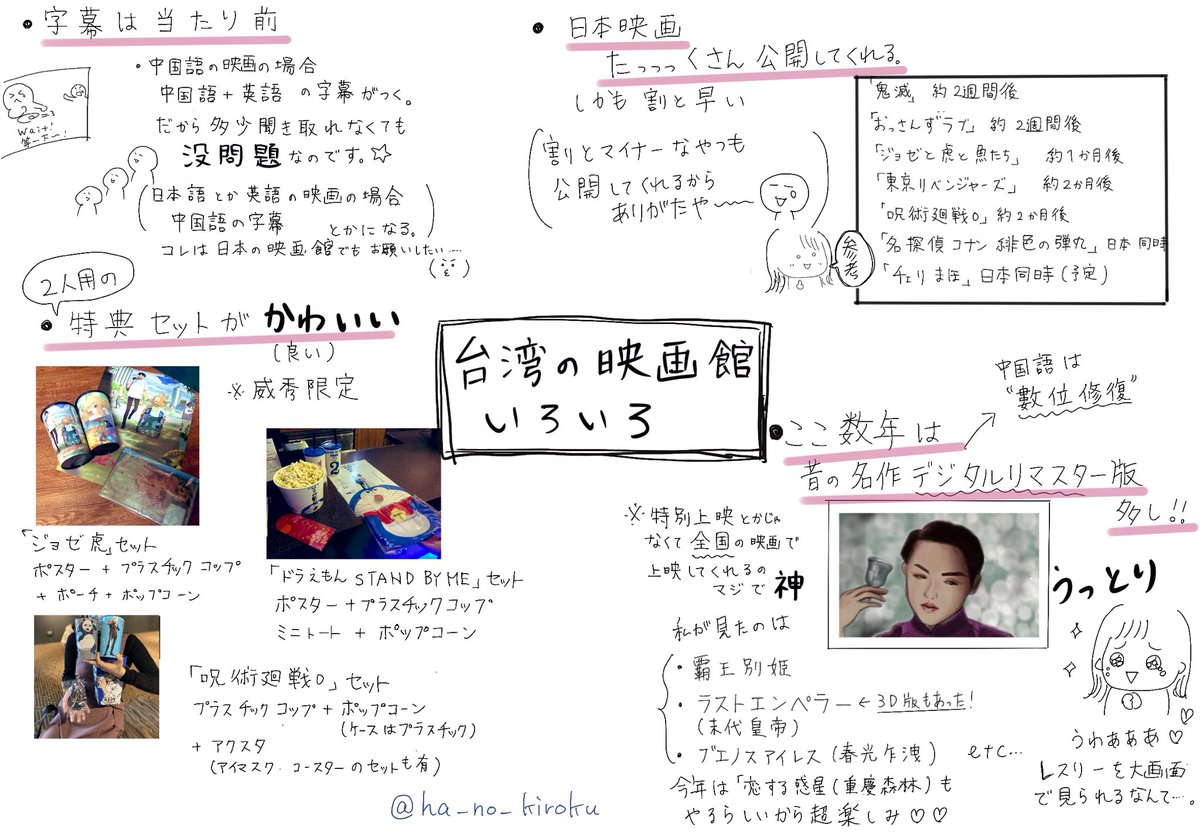 ・字幕は当たり前
・中国語の映画の場合
中国語+英語 の字幕がつく。
だから多少聞き取れなくても
没問題なのです。☆
Wait!
等一下ー!
(日本語とか英語の映画の場合
中国語の字幕 とかになる。)
コレは日本の映画館でもお願いしたい……
2人用の
・特典セットが かわいい
(良い)
※威秀限定
「ジョゼ虎」セット
ポスター + プラスチックコップ
+ ポーチ + ポップコーン
「ドラえもん STAND BY ME」セット
ポスター+プラスチックコップ
ミニトート + ポップコーン
「呪術廻戦0」セット
プラスチックコップ + ポップコーン
(ケースはプラスチック)
+ アクスタ
(アイマスク、コースターのセットも有)
台湾の映画館
いろいろ
・日本映画
たっっっくさん公開してくれる。
しかも割と早い
(割りとマイナーなやつも
公開してくれるから
ありがたや〜〜)
参考
「鬼滅」 約2週間後
「おっさんずラブ」 約2週間後
「ジョゼと虎と魚たち」 約1か月後
「東京リベンジャーズ」 約2か月後
「呪術廻戦0」約2か月後
「名探偵コナン 緋色の弾丸」日本同時
「チェリまほ」日本同時(予定)
中国語は
"數位修復"
・ここ数年は
昔の名作デジタルリマスター版
多し!!
※特別上映とかじゃ
なくて全国の映画で
上映してくれるの
マジで神
うっとり
私が見たのは
・覇王別姫
・ラストエンペラー ← 3D版もあった!
(末代皇帝)
・ブエノスアイレス(春光乍洩) etc…
今年は「恋する惑星(重慶森林)も
やるらしいから超楽しみ♡♡
うわぁぁぁ♡
レスリーを大画面
で見られるなんて…。
@ha_no_kiroku